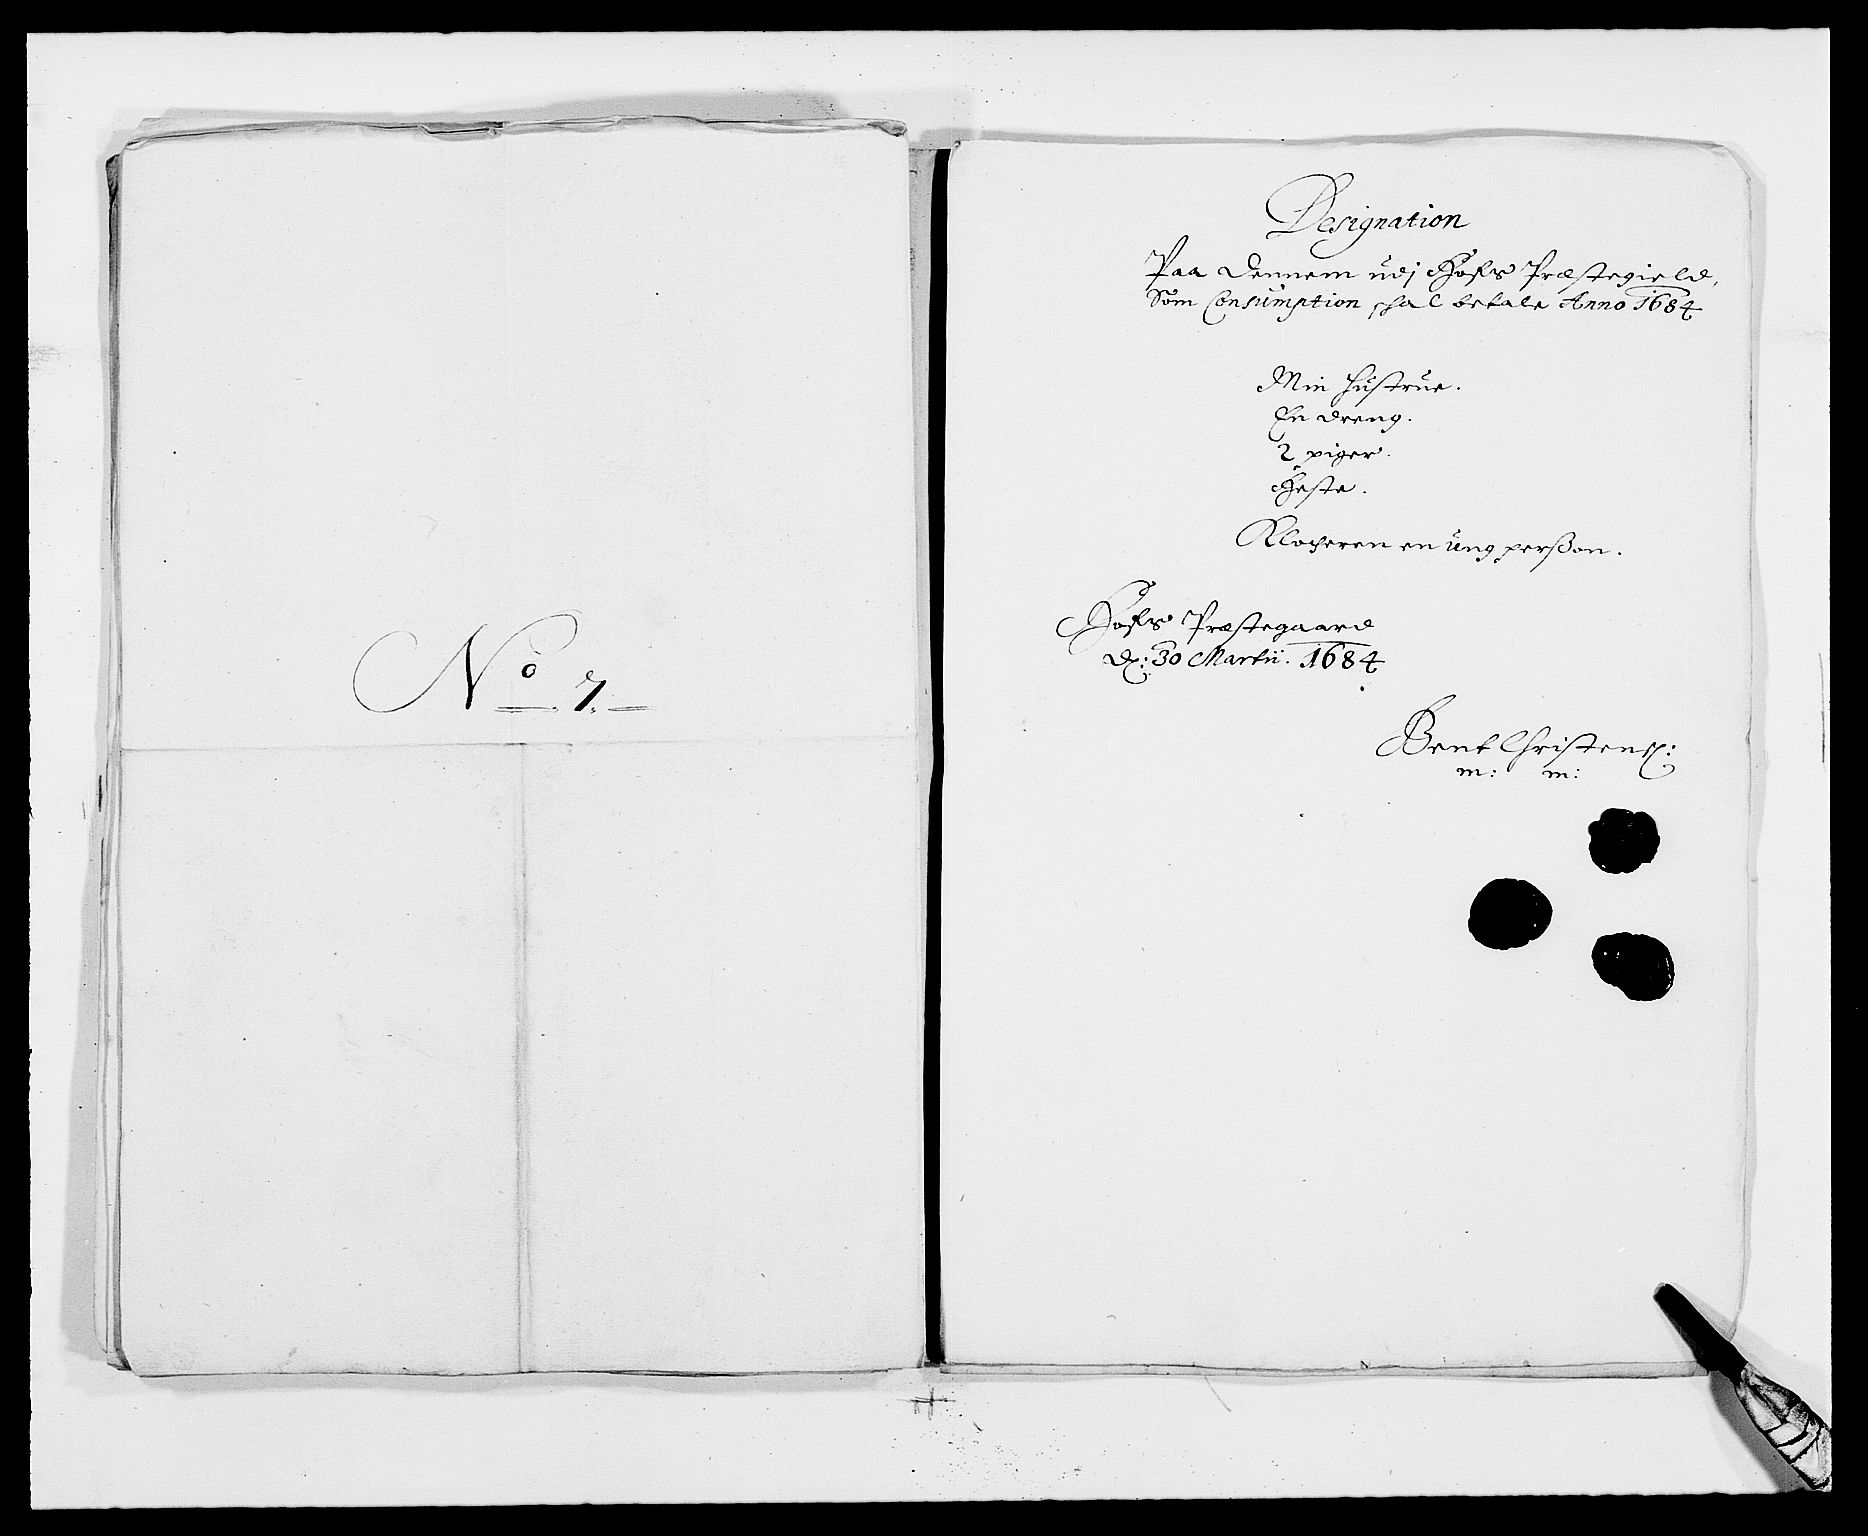 No 7.
Designation
Paa dennem udj Hofs Præstegield,
Som Consumption schal betale Anno 1684
Min hustrue.
En dreng.
2 piger.
Heste.
Klocheren en ung perßon.
Hofs Præstegaard
d: 30 Martii. 1684
Bent Christens:
m: m: